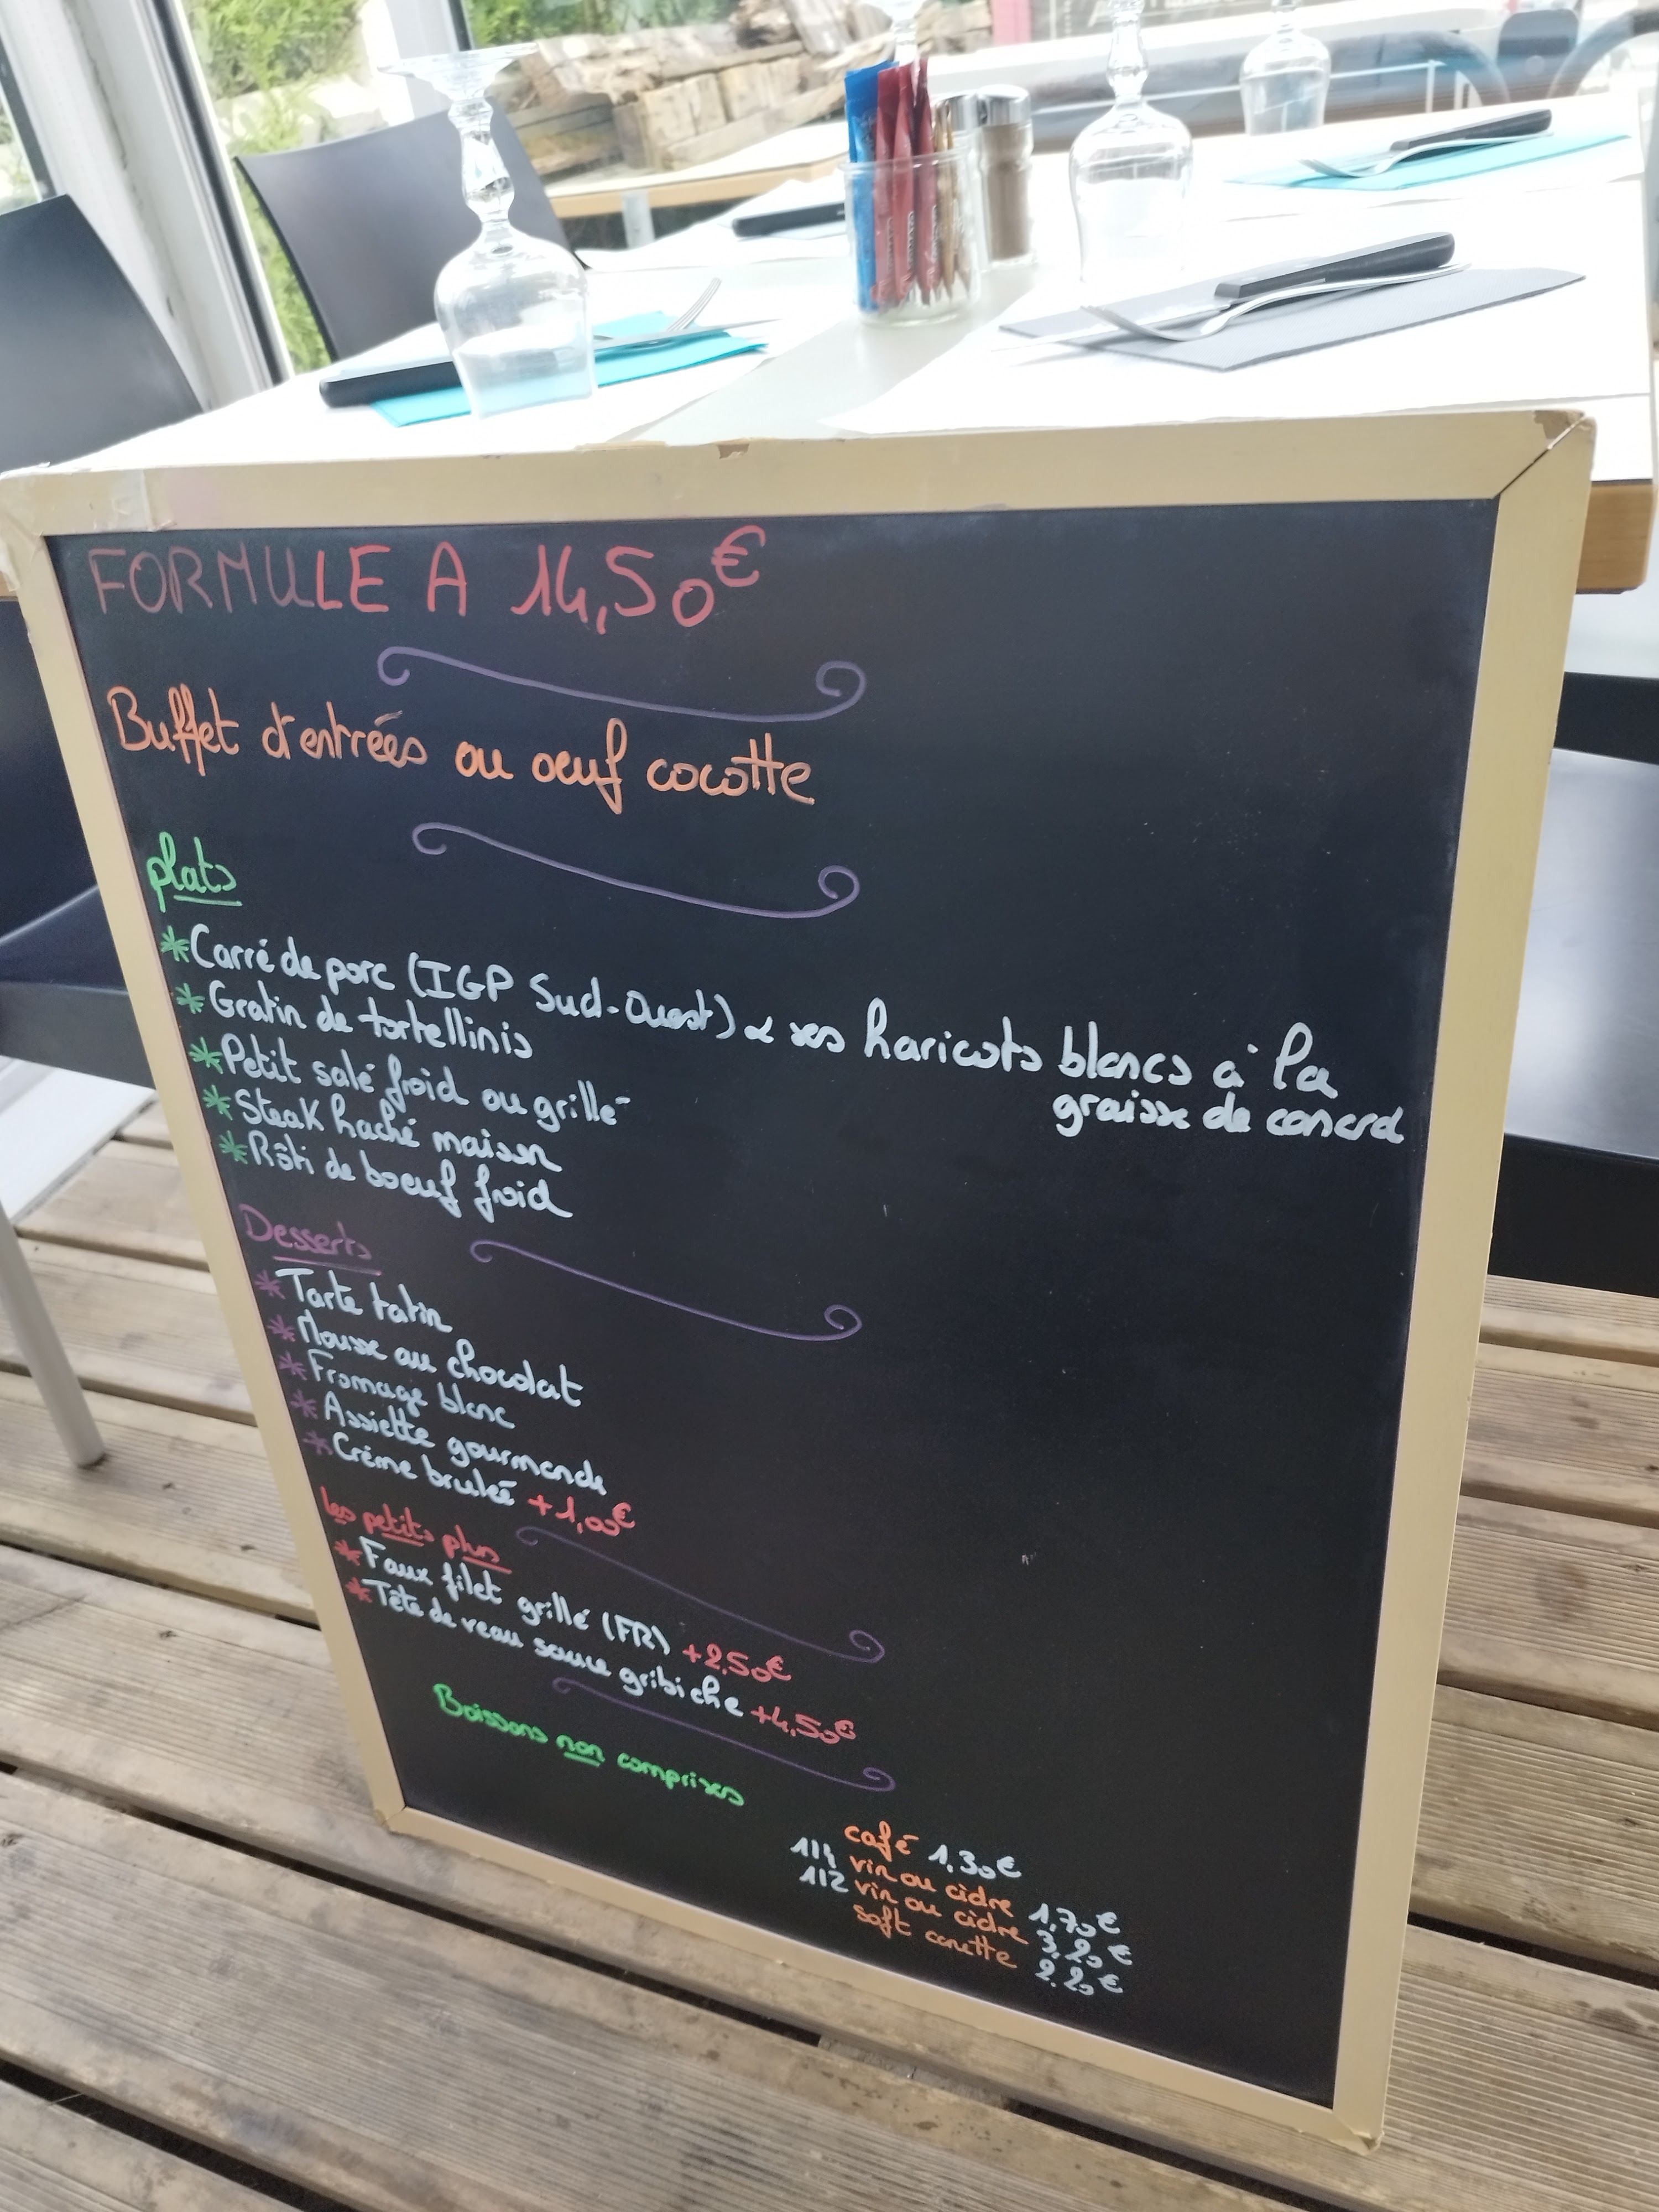 FORMULE A 14,50€
Buffet d'entrées ou oeuf cocotte
plats
*Carré de porc (IGP Sud-Ouest) & ses haricots blancs à la
graisse de canard
*Gratin de tortellinis
*Petit salé froid ou grillé
*Steak haché maison
*Rôti de boeuf froid
Desserts
*Tarte tatin
*Mousse au chocolat
*Fromage blanc
*Assiette gourmande
*Crème brulée +1,00€
les petits plus
*Faux filet grillé (FR) +2,50€
*Tête de veau sauce gribiche +4,50€
Boissons non comprises
café 1,30€
1/4 vin ou cidre 1,70€
1/2 vin ou cidre 3,20€
soft canette 2,20€